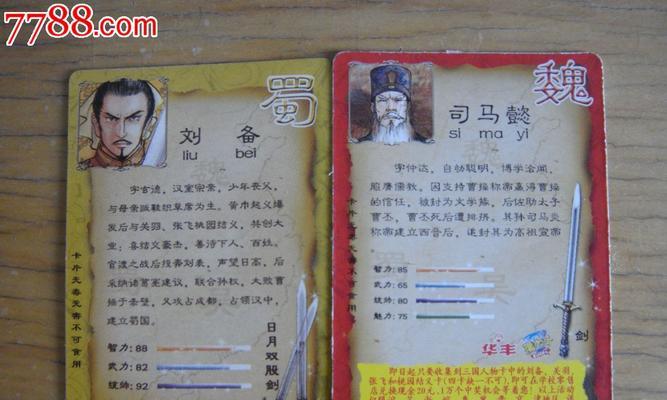 7788.com
蜀
刘 备
liu bei
字玄德，汉室宗亲，少年丧父，
与母亲贩鞋织草席为生。黄巾起义爆
发后与关羽、张飞桃园结义，共创大
业；喜结义豪杰，善待下人、百姓。
官渡之战后投奔刘表，声望日高，后
采纳诸葛亮建议，联合孙权，大败曹
操于赤壁，又攻占成都，占领汉中，
建立蜀国。
智力：88
武力：82
统帅：92
日月双股剑
卡片无毒无害不可食用
魏
司马懿
si ma yi
字仲达，自幼聪明，博学洽闻，
服膺儒教，因支持曹操称帝赢得曹操
的信任，被封为文学掾，后佐助太子
曹丕，曹丕死后遭排挤。其孙司马炎
称帝建立西晋后，追封其为高祖宣帝
智力：85
武力：65
统帅：80
魅力：75
剑
华丰
卡片无毒无害不可食用
即日起只要收集到三国人物卡中的刘备、关羽、
张飞和桃园结义卡(四卡缺一不可),即可在学校零售
店兑换现金20元，1万个中奖机会等着您！以上活动